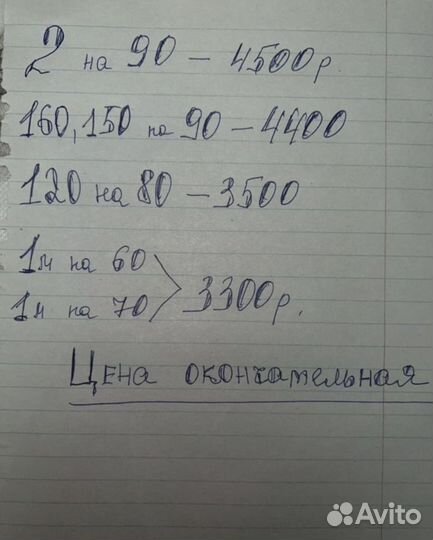 2 на 90 - 4500р.
160,150 на 90 - 4400
120 на 80 - 3500
1м на 60
1м на 70 > 3300р.
Цена окончательная
Avito